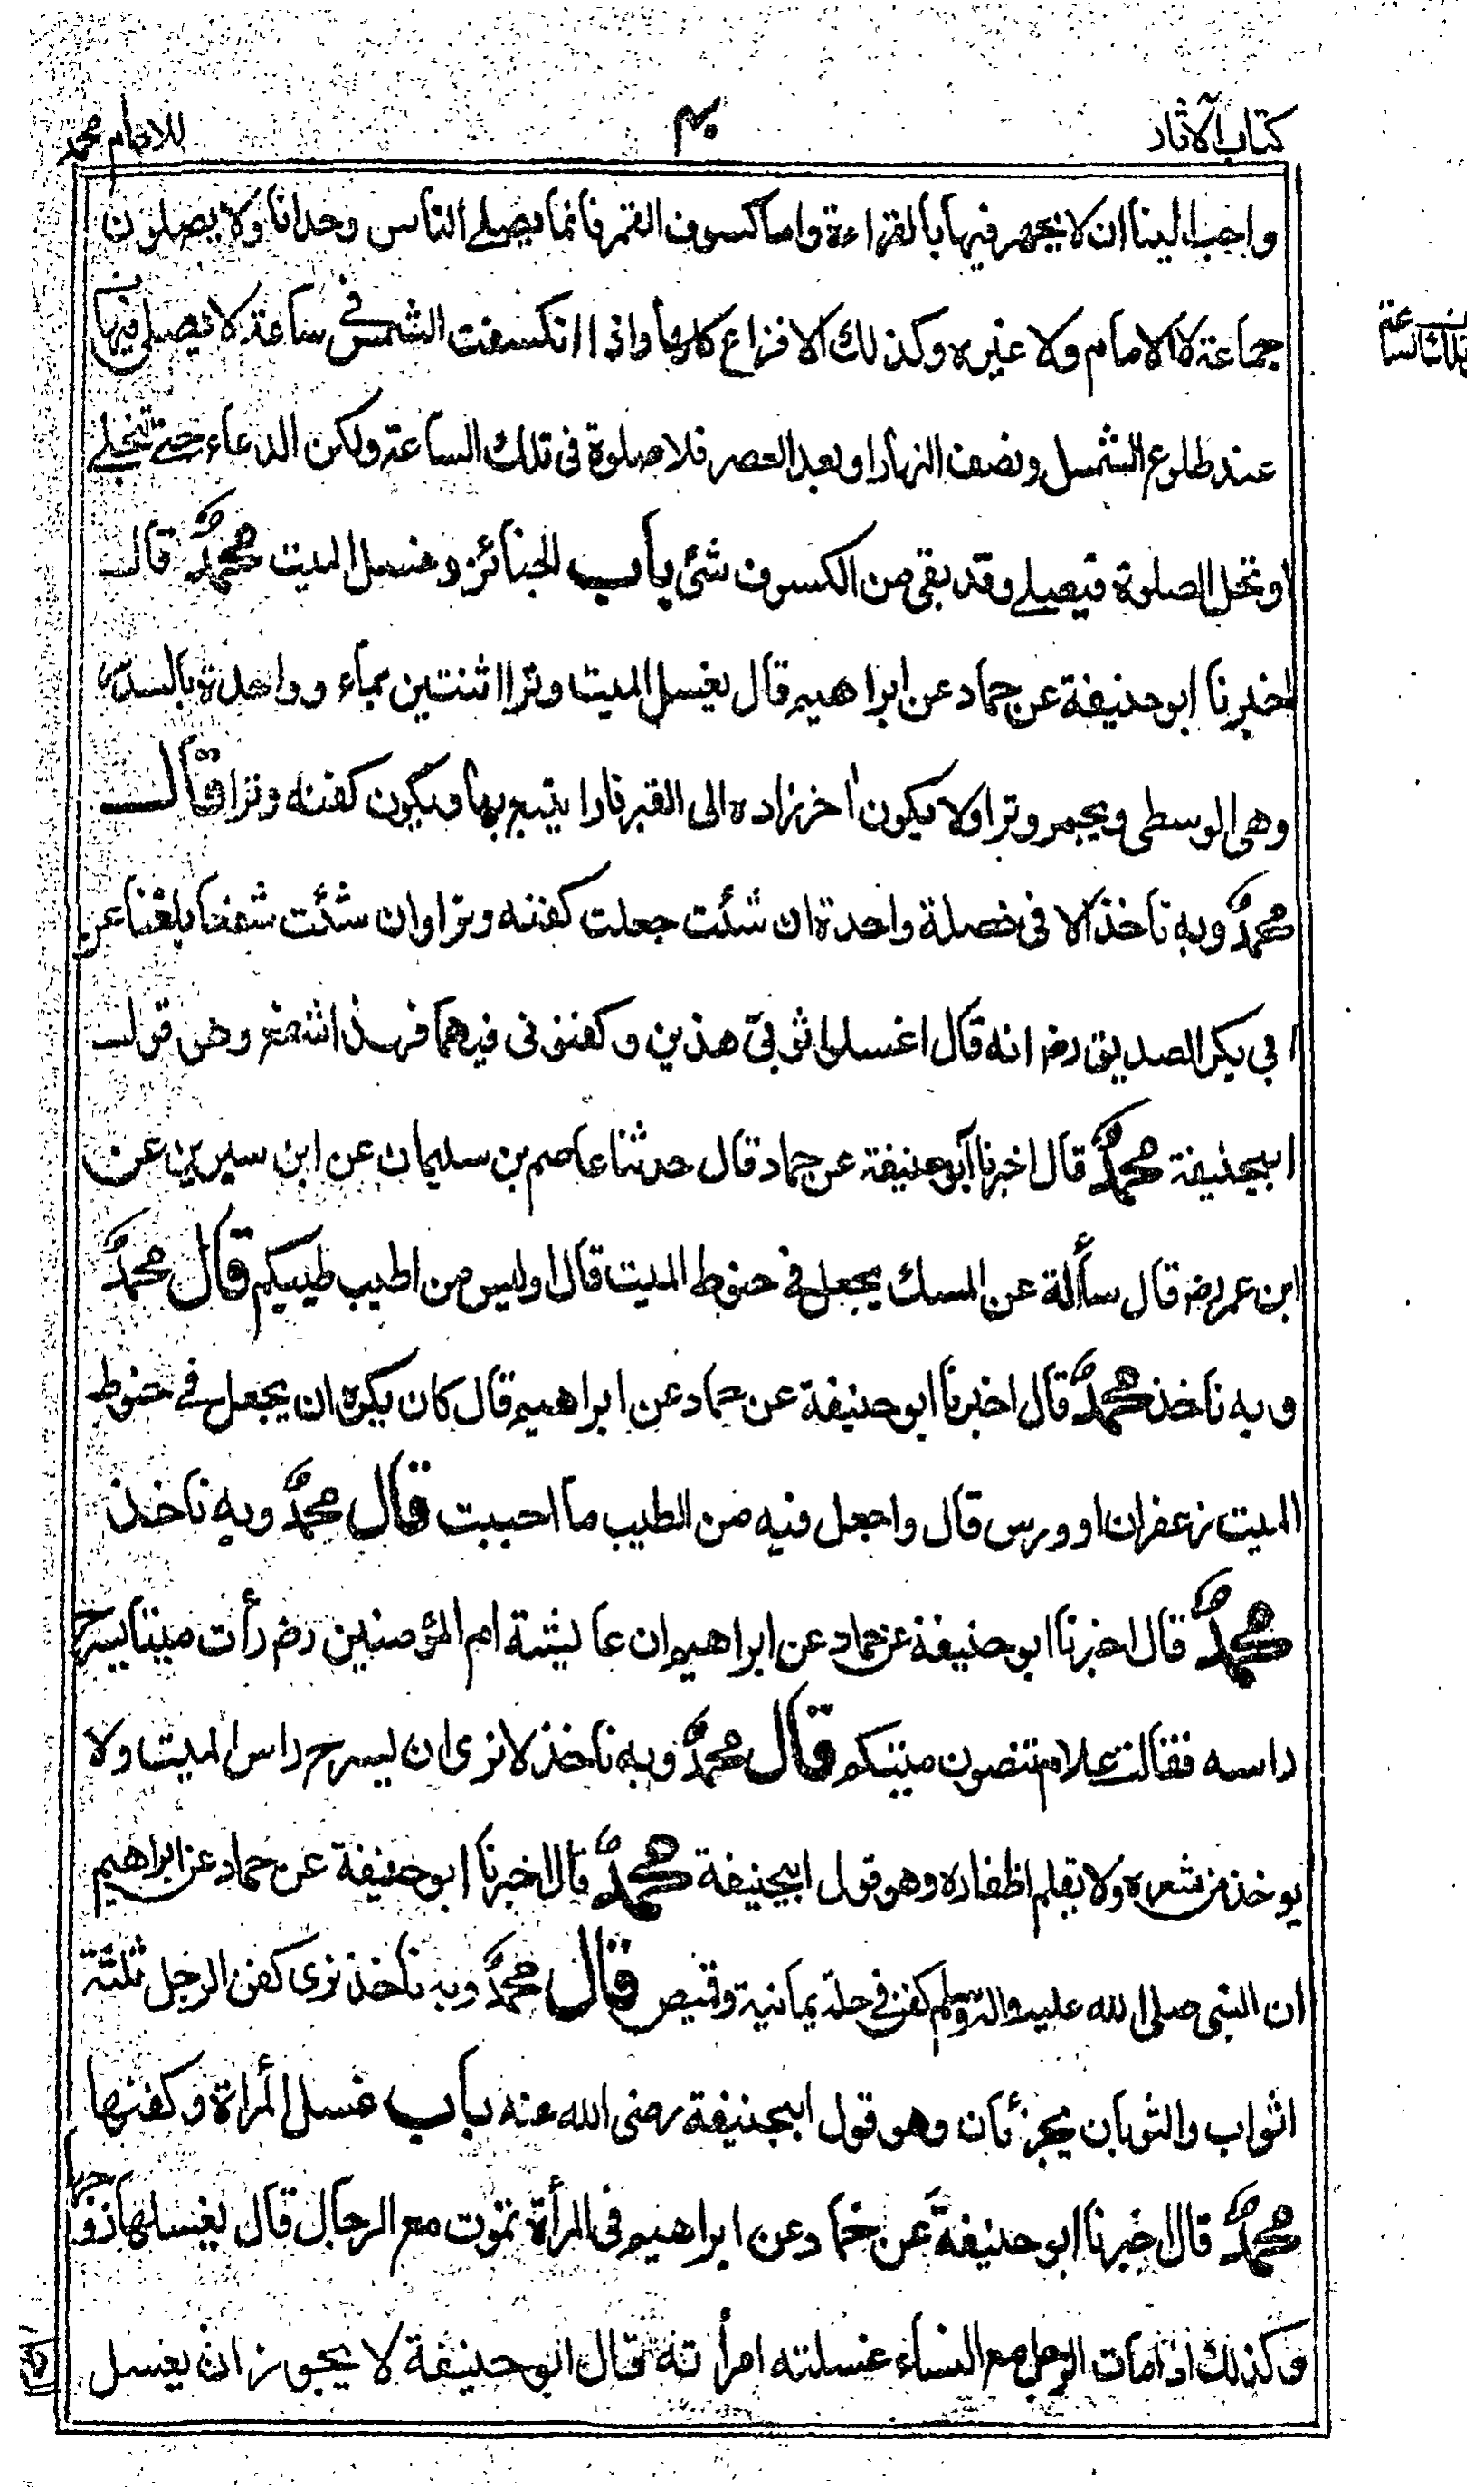 كتاب الآثار
٤٠
للامام محمد
واحب الينا ان لا يجهر فيها بالقراءة واما كسوف القمر فانما يصلى الناس وحدانا ولا يصلون
جماعة لا الامام ولا غيره وكذلك الافزاع كلها واذا انكسفت الشمس في ساعة لا يصلى فيها
عند طلوع الشمس ونصف النهار او بعد العصر فلا صلوة فى تلك الساعة ولكن الدعاء حتى تنجلى
او تحل الصلوة فيصلى وقد بقى من الكسوف شئ باب الجنائز وغسل الميت محمد قال
اخبرنا ابوحنيفة عن حماد عن ابراهيم قال يغسل الميت وترا اثنتين بماء وواحدة بالسدر
وهى الوسطى ويجمر وترا ولا يكون اخر زاده الى القبر نارا يتبع بها ويكون كفنه وترا قال
محمد وبه ناخذ الا فى خصلة واحدة ان شئت جعلت كفنه وترا وان شئت شفعا بلغنا عن
ابي بكر الصديق رض انه قال اغسلوا ثوبيّ هذين وكفنونى فيهما فهذا شفع وهو قول
ابيحنيفة محمد قال اخبرنا ابوحنيفة عن حماد قال حدثنا عاصم بن سليمان عن ابن سيرين عن
ابن عمر رض قال سألة عن المسك يجعل في حنوط الميت قال اوليس من اطيب طيبكم قال محمد
وبه ناخذ محمد قال اخبرنا ابوحنيفة عن حماد عن ابراهيم قال كان يكره ان يجعل في حنوط
الميت زعفران او ورس قال واجعل فيه من الطيب ما احببت قال محمد وبه ناخذ
محمد قال اخبرنا ابوحنيفة عن حماد عن ابراهيم ان عايشة ام المؤمنين رض رأت ميتا يسرح
راسه فقالت علام تنصون ميتكم قال محمد وبه ناخذ لا نرى ان يسرح راس الميت ولا
يوخذ من شعره ولا يقلم اظفاره وهو قول ابيحنيفة محمد قال اخبرنا ابوحنيفة عن حماد عن ابراهيم
ان النبى صلى الله عليه وآله وسلم كفن في حلة يمانية وقميص قال محمد وبه ناخذ نرى كفن الرجل ثلثة
اثواب والثوبان يجزئان وهو قول ابيحنيفة رضى الله عنه باب غسل المراة وكفنها
محمد قال اخبرنا ابوحنيفة عن حماد عن ابراهيم فى المرأة تموت مع الرجال قال يغسلها زوجها
وكذلك اذا مات الرجل مع النساء غسلته امرأته قال ابوحنيفة لا يجوز ان يغسل